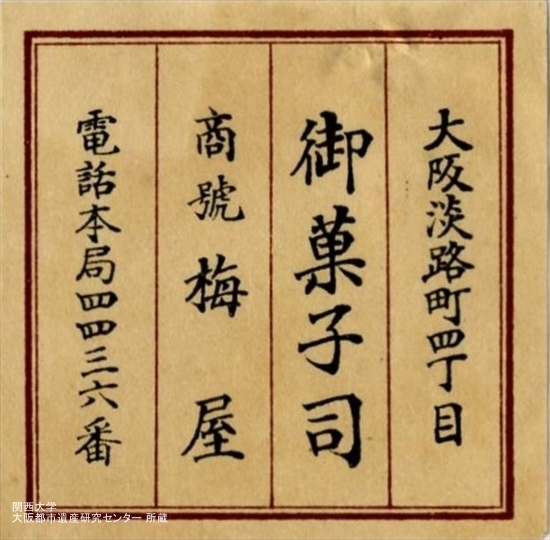 大阪淡路町四丁目
御菓子司
商號 梅屋
電話本局四四三六番
関西大学
大阪都市遺産研究センター 所蔵